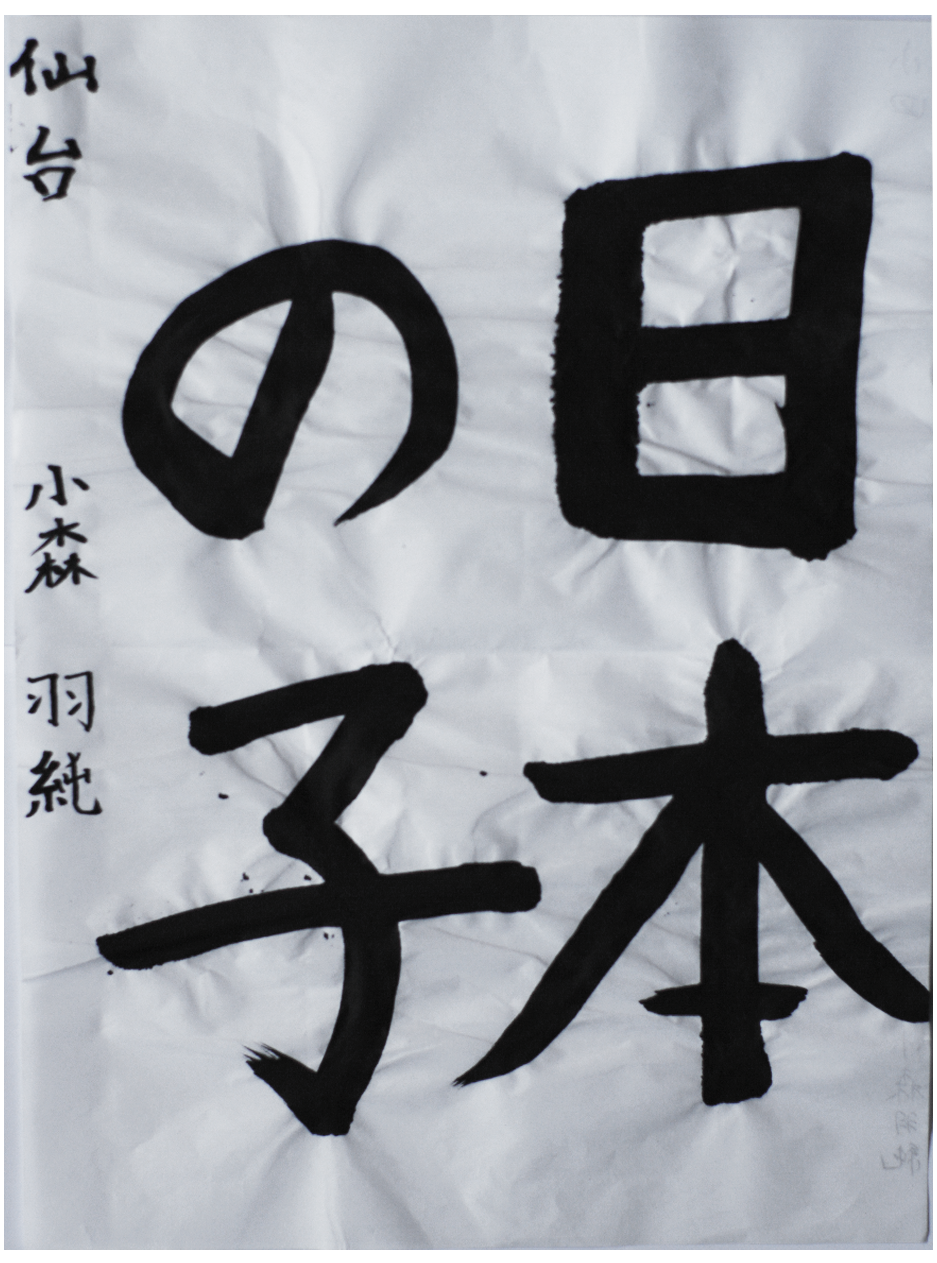 日本
の子
仙台 小森 羽純